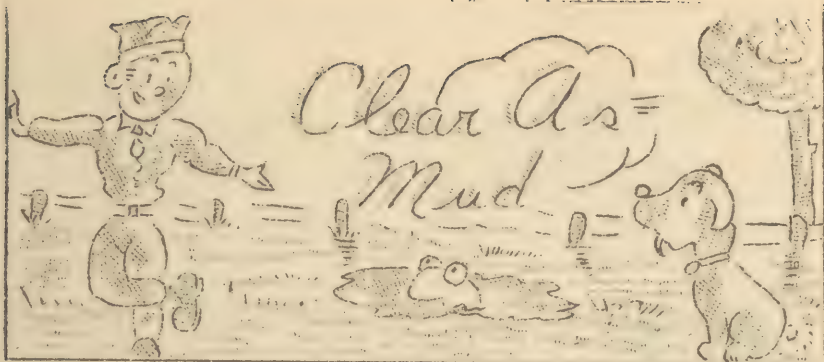 Clear As
Mud